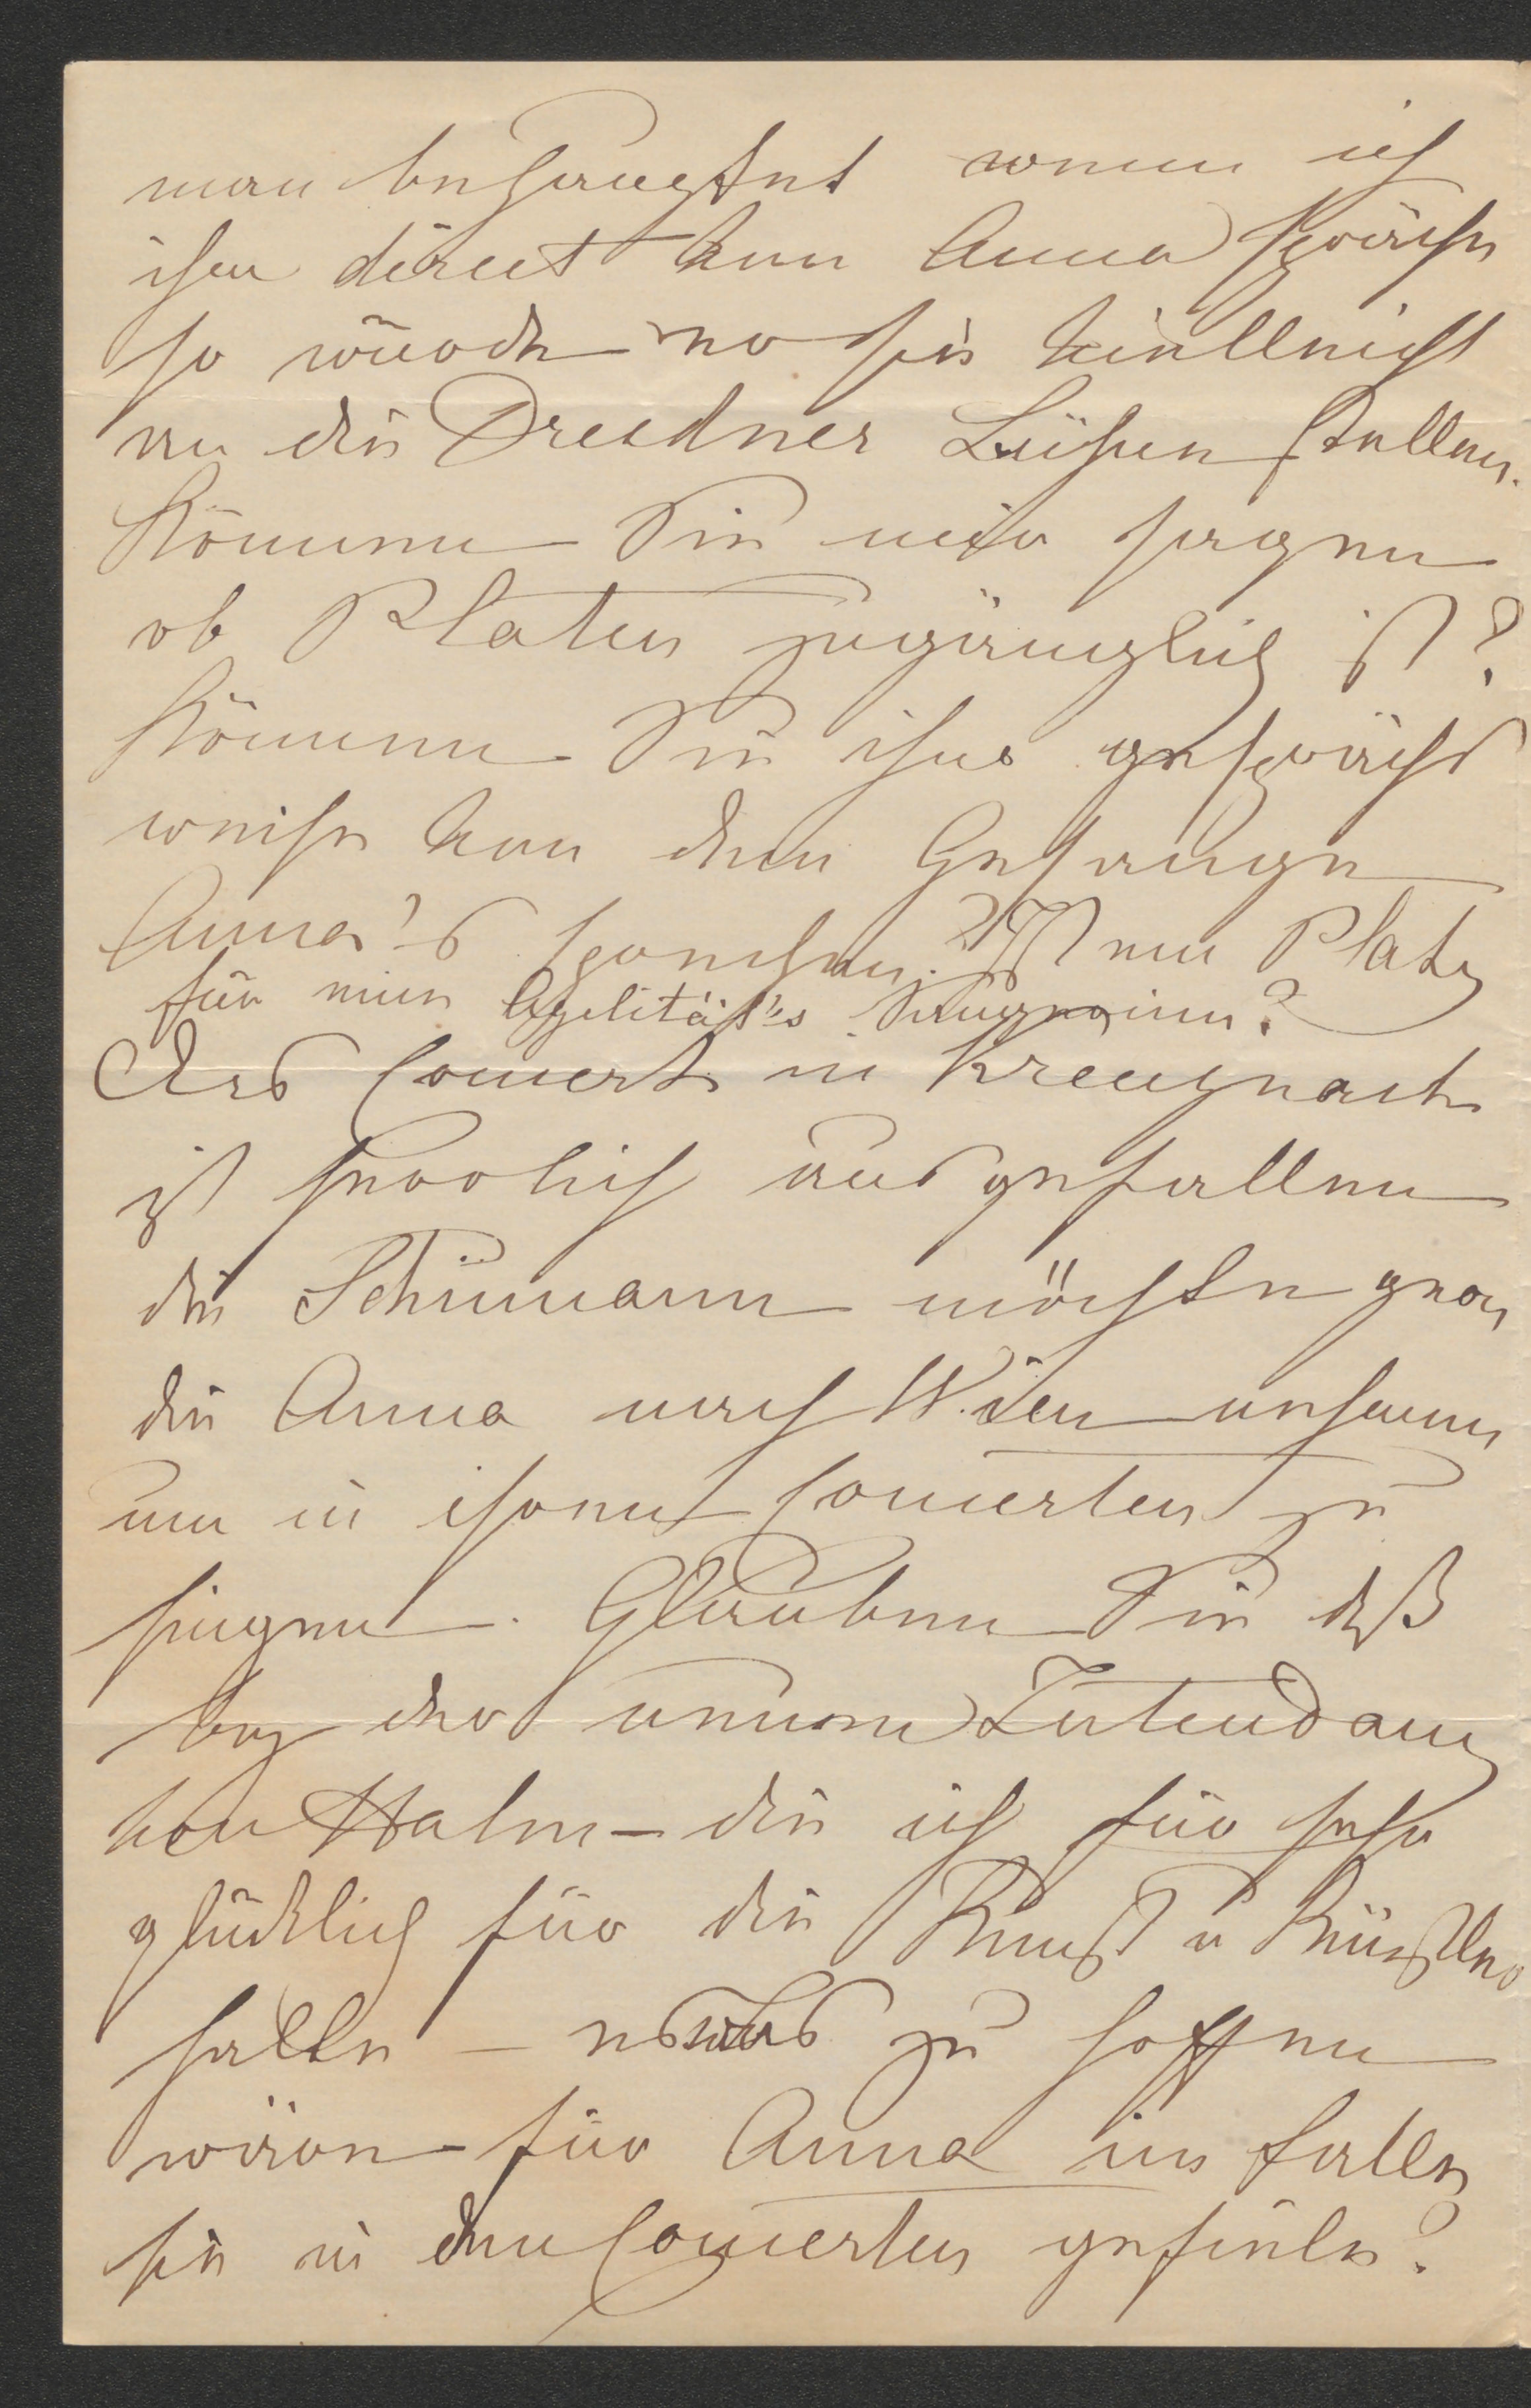 man behauptet wenn ich
ihm direct von Anna spräche
so würde er sie vielleicht
an die Dresdner Bühne stellen.
Können Sie mir sagen
ob Platen zugänglich ist?
Können Sie ihm gesprächs
weise von dem Gesange
Anna's sprechen? Ist ein Platz
für eine Agilität's Sängerinn?
Das Concert in Kreuznach
ist herrlich ausgefallen
die Schumann möchte gern
die Anna nach Wien nehmen
um in ihren Concerten zu
singen. Glauben Sie daß
bey der neuen Intendanz
von Halm – die ich für sehr
glücklich für die Kunst u Künstler
halte – etwas zu hoffen
wäre – für Anna im falle
sie in den Concerten gefiele?